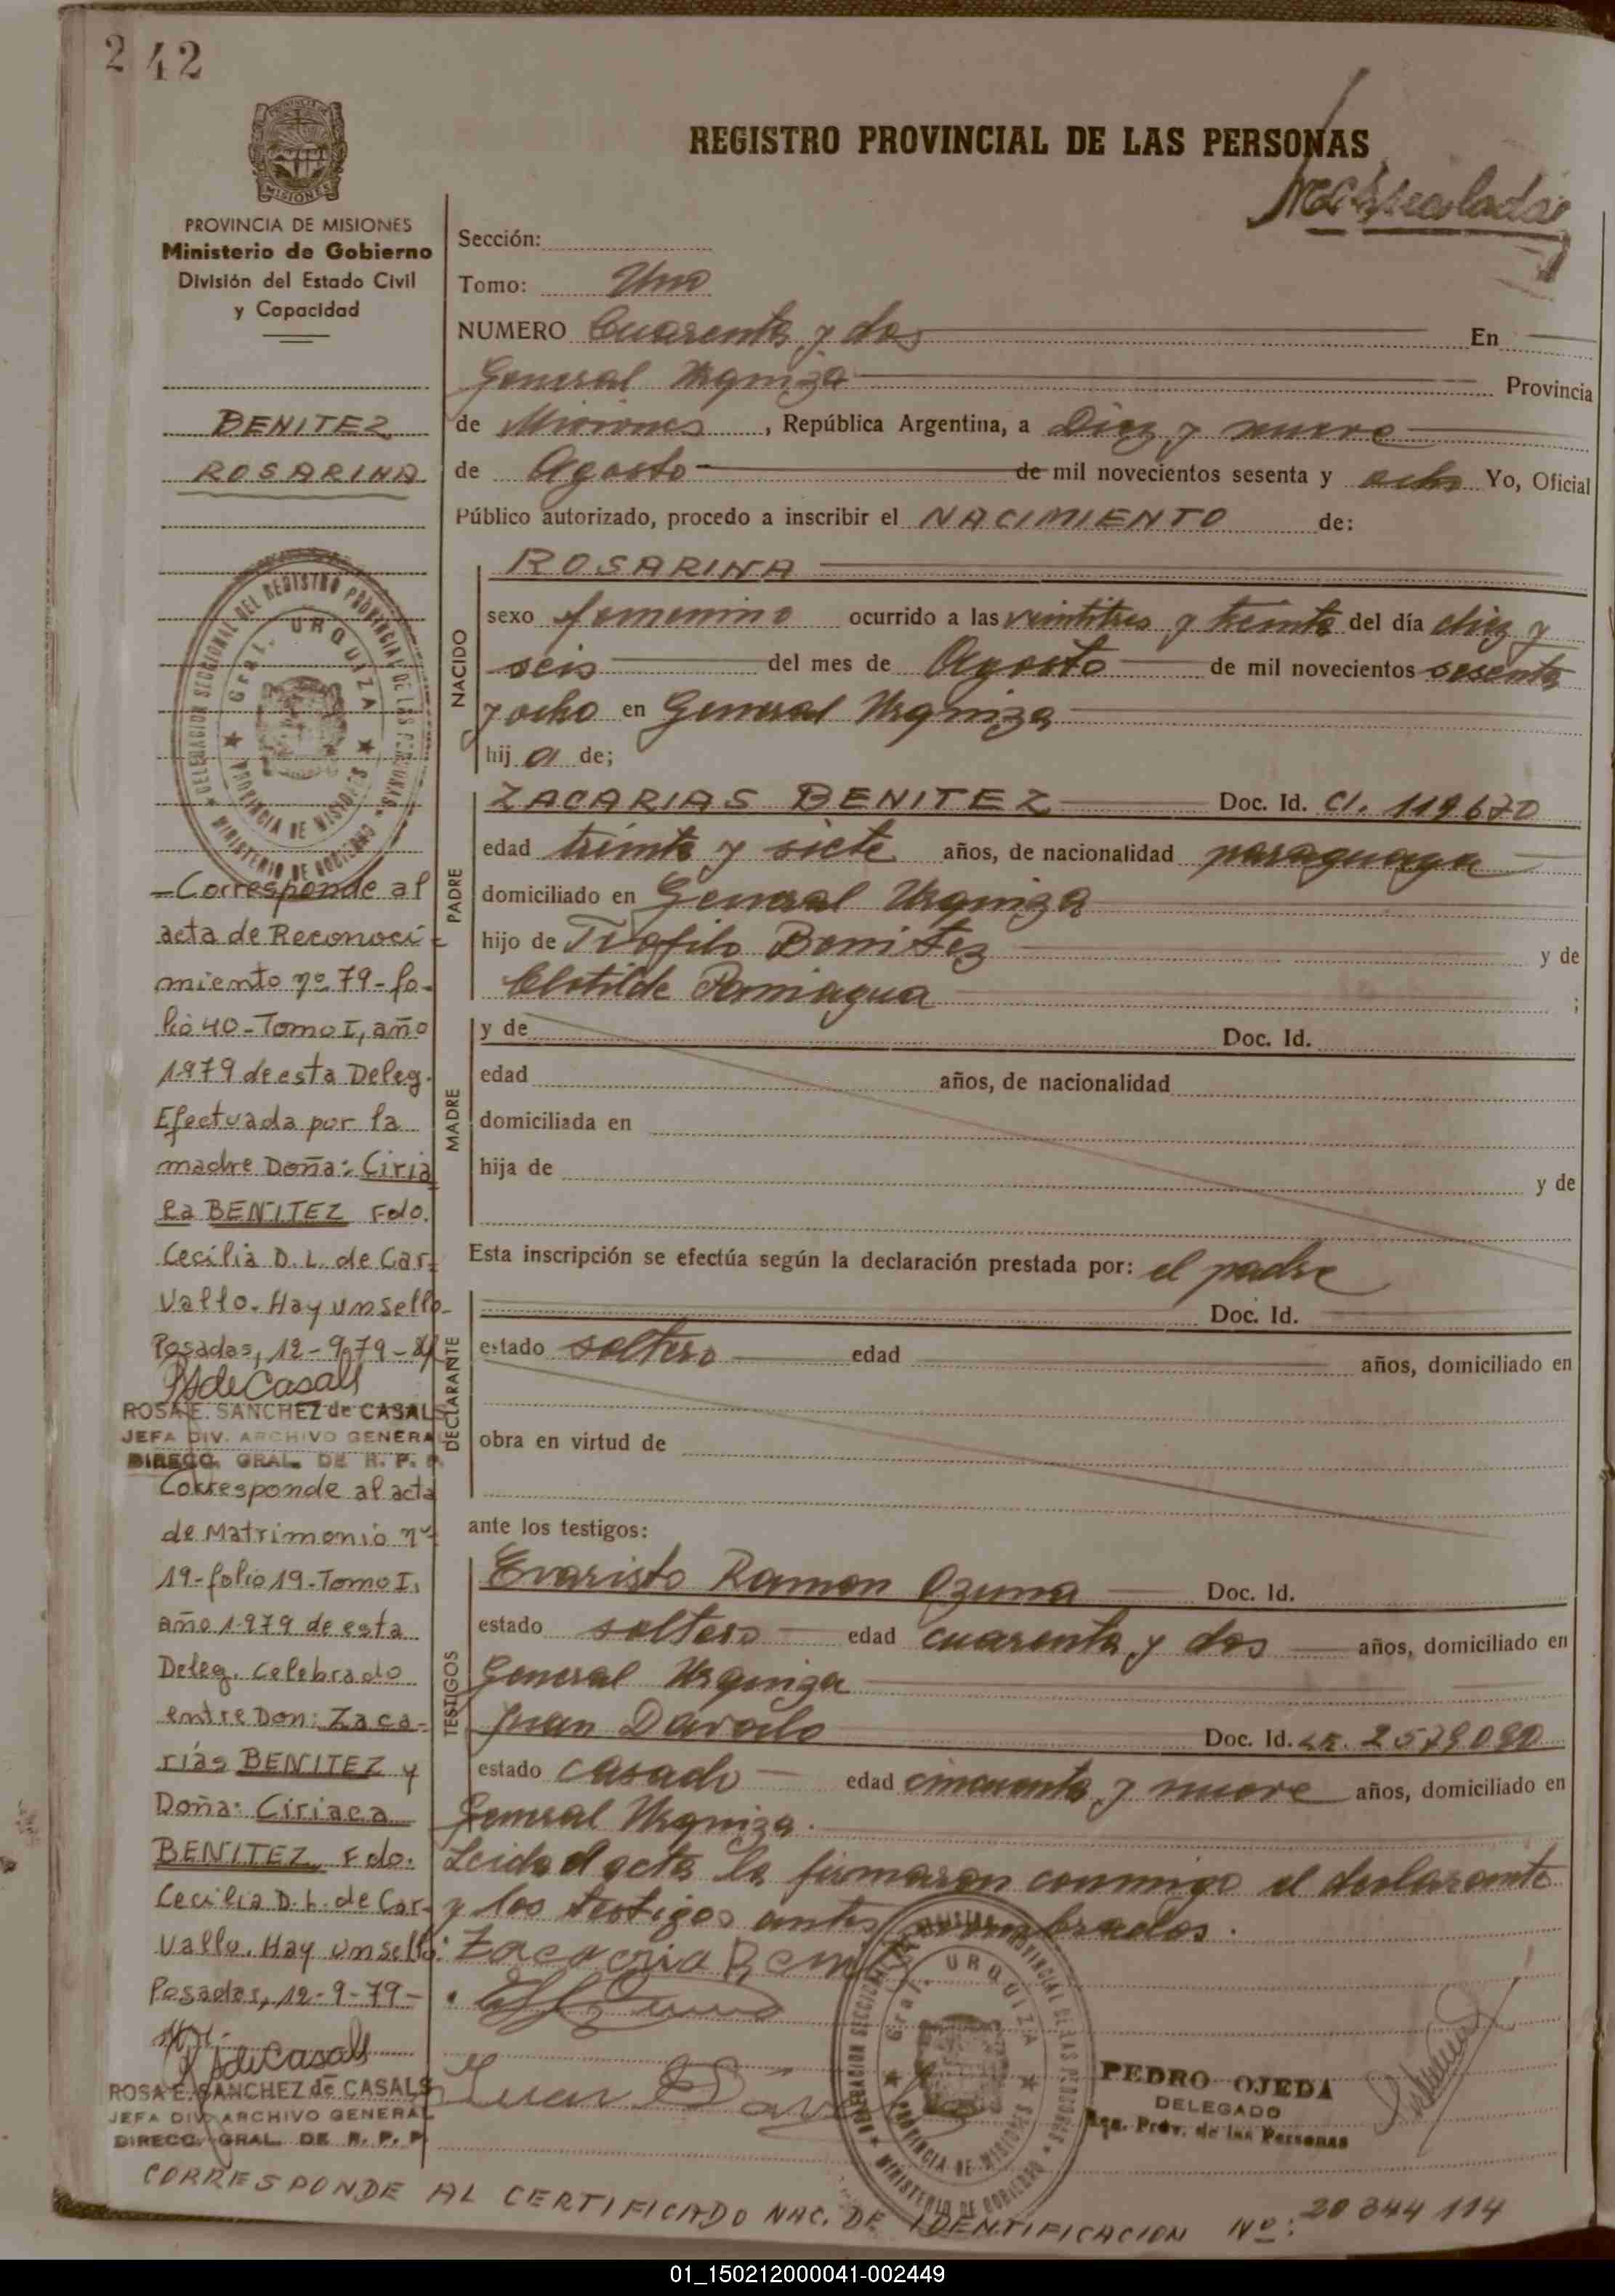 242
REGISTRO PROVINCIAL DE LAS PERSONAS
PROVINCIA DE MISIONES
Ministerio de Gobierno
División del Estado Civil
y Capacidad
BENITEZ
ROSARINA
Sección:
Tomo: Uno
NUMERO Cuarenta y dos En
General Urquiza Provincia
de Misiones, República Argentina, a Diez y nueve
de Agosto de mil novecientos sesenta y ocho Yo, Oficial
Público autorizado, procedo a inscribir el NACIMIENTO de:
NACIDO
ROSARINA
sexo femenino ocurrido a las veintitres y treinta del día diez y
seis del mes de Agosto de mil novecientos sesenta
y ocho en General Urquiza
hij a de;
PADRE
ZACARIAS BENITEZ Doc. Id. CI. 119670
edad treinta y siete años, de nacionalidad paraguaya
domiciliado en General Urquiza
hijo de Teofilo Benitez y de
Clotilde Paniagua ;
MADRE
y de Doc. Id.
edad años, de nacionalidad
domiciliada en
hija de y de
Esta inscripción se efectúa según la declaración prestada por: el padre
DECLARANTE
Doc. Id.
estado soltero edad años, domiciliado en
obra en virtud de
ante los testigos:
TESTIGOS
Evaristo Ramon Ozuna Doc. Id.
estado soltero edad cuarenta y dos años, domiciliado en
General Urquiza
Juan Davalo Doc. Id. LE. 2579090
estado casado edad cincuenta y nueve años, domiciliado en
General Urquiza.
Leida el acta la firmaron conmigo el declarante
y los testigos antes nombrados.
Zacaria Beni
Juan Dav
PEDRO OJEDA
DELEGADO
Reg. Prov. de las Personas
DELEGACION SECCIONAL DEL REGISTRO PROVINCIAL DE LAS PERSONAS
Gral. URQUIZA
PROVINCIA DE MISIONES
MINISTERIO DE GOBIERNO
- Corresponde al
acta de Reconoci-
miento nº 79-fo-
lio 40-Tomo I, año
1979 de esta Deleg.
Efectuada por la
madre Doña: Ciria
ca BENITEZ Fdo.
Cecilia D. L. de Car-
vallo. Hay un sello-
Posadas, 12-9-79-
RSdeCasals
ROSA E. SANCHEZ de CASALS
JEFA DIV. ARCHIVO GENERAL
DIRECC. GRAL. DE R. P. P.
Corresponde al acta
de Matrimonio nº
19-folio 19-Tomo I,
año 1979 de esta
Deleg. Celebrado
entre Don: Zaca-
rías BENITEZ y
Doña: Ciriaca
BENITEZ Fdo.
Cecilia D. L. de Car-
vallo. Hay un sello:
Posadas, 12-9-79-
RSdeCasals
ROSA E. SANCHEZ de CASALS
JEFA DIV. ARCHIVO GENERAL
DIRECC. GRAL. DE R. P. P.
CORRESPONDE AL CERTIFICADO NAC. DE IDENTIFICACION Nº: 20344114
01_150212000041-002449